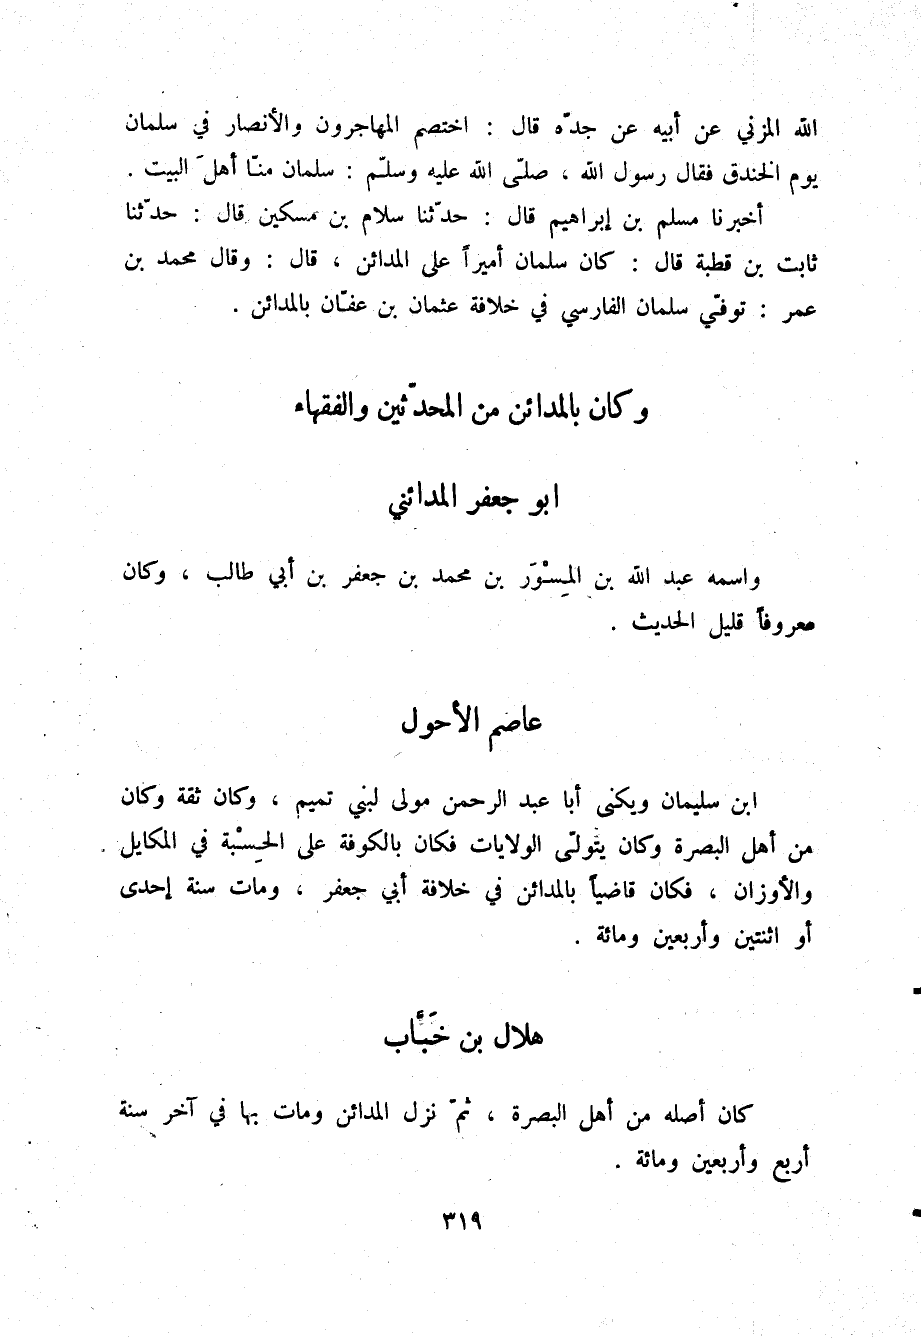 الله المزني عن أبيه عن جدّه قال : اختصم المهاجرون والأنصار في سلمان
يوم الخندق فقال رسول الله ، صلّى الله عليه وسلّم : سلمان منّا أهلَ البيت .
أخبرنا مسلم بن إبراهيم قال : حدّثنا سلام بن مسكين قال : حدّثنا
ثابت بن قطبة قال : كان سلمان أميراً على المدائن ، قال : وقال محمد بن
عمر : توفّي سلمان الفارسي في خلافة عثمان بن عفّان بالمدائن .
وكان بالمدائن من المحدّثين والفقهاء
ابو جعفر المدائني
واسمه عبد الله بن المِسْوَر بن محمد بن جعفر بن أبي طالب ، وكان
معروفاً قليل الحديث .
عاصم الأحول
ابن سليمان ويكنى أبا عبد الرحمن مولى لبني تميم ، وكان ثقة وكان
من أهل البصرة وكان يتولّى الولايات فكان بالكوفة على الحِسْبة في المكايل
والأوزان ، فكان قاضياً بالمدائن في خلافة أبي جعفر ، ومات سنة إحدى
أو اثنتين وأربعين ومائة .
هلال بن خَبَّاب
كان أصله من أهل البصرة ، ثمّ نزل المدائن ومات بها في آخر سنة
أربع وأربعين ومائة .
٣١٩